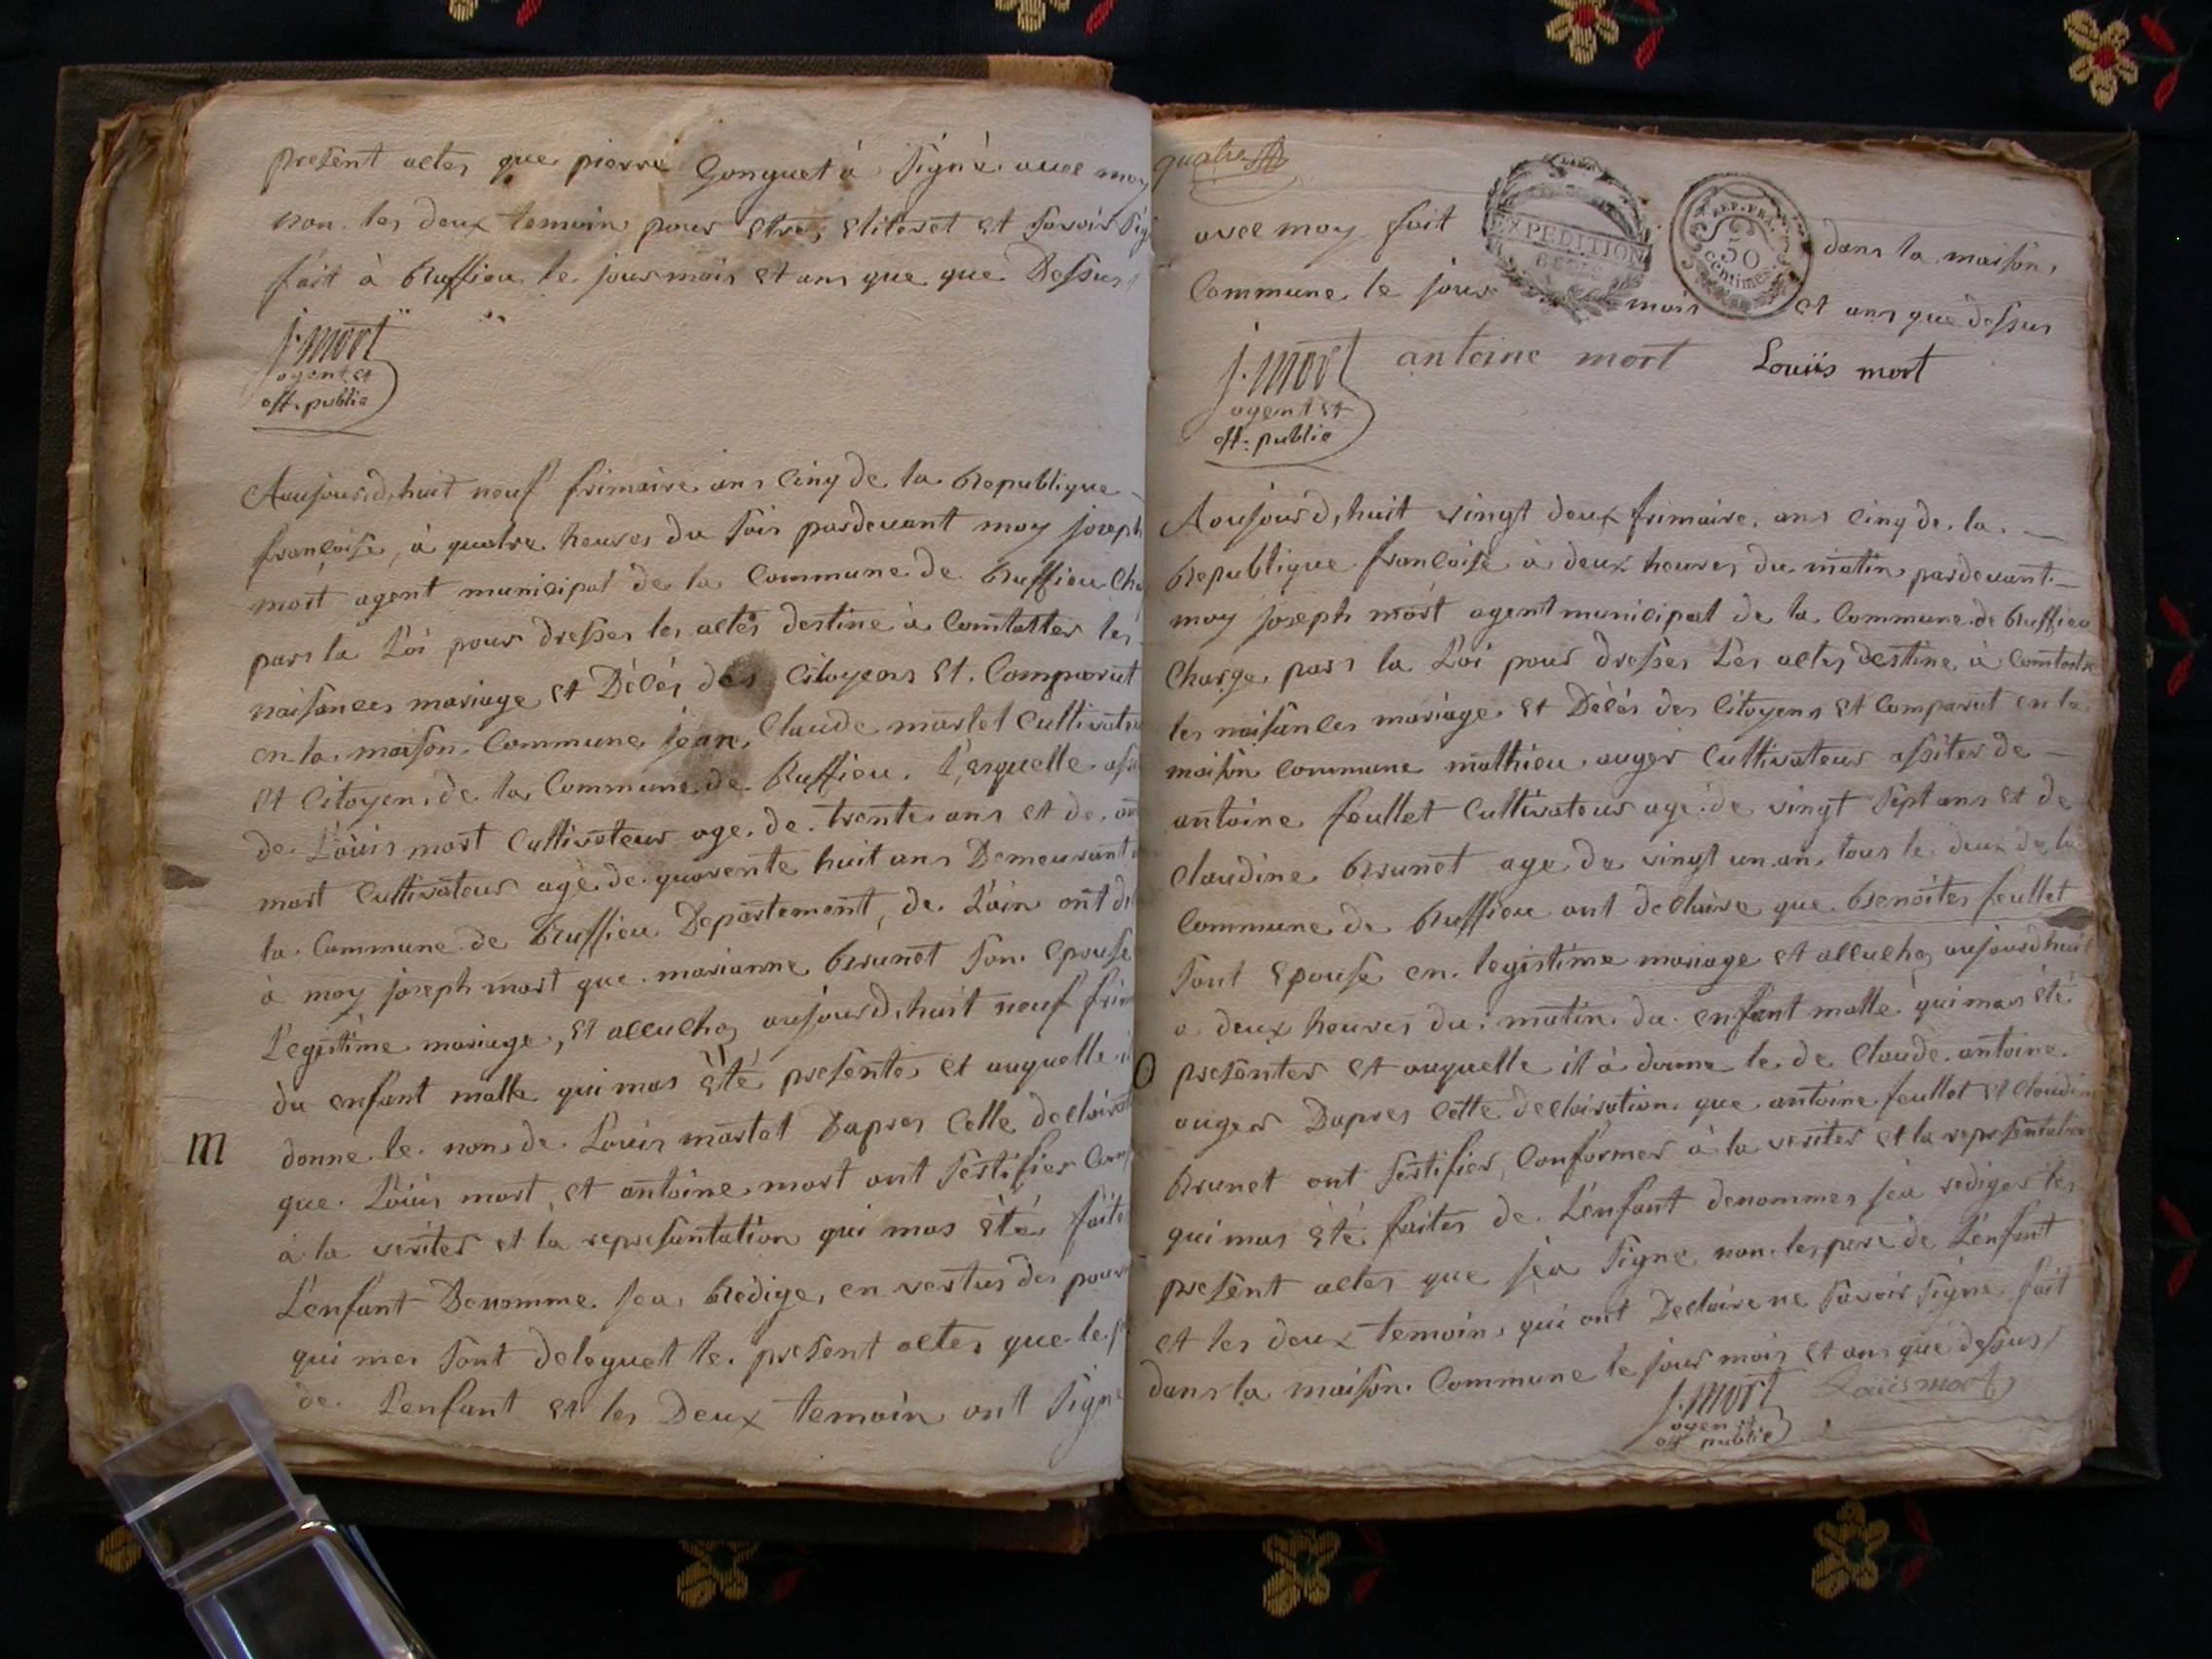 present actes que pierre Gonguet à signè avec moy
non les deux temoin pour etres eliteret et savoir
fait à Ruffieu le jour mois et ans que que Dessus
j. mort
agent et
off. public
Aoujourd,huit neuf frimaire ans cinq de la Republique
françoise, à quatre heures du soir pardevant moy joseph
mort agent municipal de la Commune de Ruffieu
pars la Loi pour dresser les actes destine à Comtatter les
naisances mariage et Décés des Citoyens et Comparut
en la maison Commune jean Claude martel
et Citoyen de la Commune de Ruffieu
de Loüis mort Cultivateur age de trente ans et de
mort Cultivateur agè de quarente huit ans Demeurant
la Commune de Ruffieu Departement de Lain ont
à moy joseph mort que marianne Brunet son epouse
Legistime mariage, et accuchez aujourd,huit neuf
du enfant malle qui mas èté presentes et auquelle
donne le nons de Louis martel Dapres Celle
que Loüis mort et antoine mort ont sertifier
à la verites et la represantation qui mas èté
L'enfant Denomme jea Rédige en vertus des
qui mes sont deleguet le present actes que le
de Lenfant et les Deux temoin ont
m
quatre
avec moy fait dans la maison
Commune le jour mois et ans que dessus
EXPEDITION
REP. FRA.
50
centimes
j. mort antoine mort Louiis mort
agent et
off. public
Aoujourd,huit vingt deux frimaire ans cinq de la
Republique francoise à deux heures du matin pardevant
moy joseph mort agent municipal de la Commune de Ruffieu
Charge pars la Loi pour dresser Les actes destine à
les naisances mariage et Décés des Citoyens et Comparut en la
maison Commune mathieu auger Cultivateur assiter de
antoine feullet Cultivateur age de vingt sept ans et de
Claudine Brunet age de vingt un an tous le deux de la
Commune de Ruffieu ont declaire que Benoites feullet
sont epouse en legistime mariage et accuchez aujourdhuit
a deux heures du matin du enfant malle qui mas èté
O presenter et auquelle il à donne le de Claude antoine
auger Dapres Cette declairation que antoine feullet et
Brunet ont sertifier Conformer à la verites et la
qui mas èté faites de L'enfant denommes jea rediger les
present actes que jea signe non les pere de L'enfant
et les deux temoin qui ont Declaire ne savoir signe fait
dans la maison Commune le jour mois et ans que dessus
j. mort Loüis mort
agen et
off public